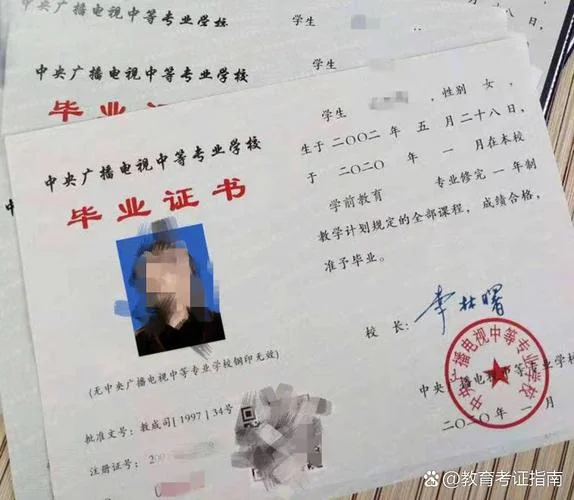 中央广播电视中等专业学校
学生
中央广播电视中等专业学校
学生
毕业证
中央广播电视中等专业学校
毕业证书
(无中央广播电视中等专业学校钢印无效)
批准文号：教成司[1997]34号
注册证号：200
学生 ，性别 女，
生于二〇〇二年 五 月二十八日，
于 二〇二〇 年 一 月在本校
学前教育 专业修完 一 年制
教学计划规定的全部课程，成绩合格，
准予毕业。
校 长：李林曙
中央广播电视中等专业学校
中央广播电视中等专业学校
二〇二〇年 一 月
@教育考证指南